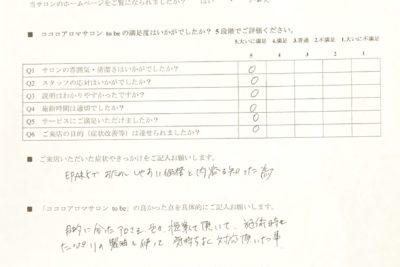 当サロンのホームページをご覧になられましたか？ はい
■ ココロアロマサロン to be の満足度はいかがでしたか？ 5段階でご評価ください。
5.大いに満足 4.満足 3.普通 2.不満足 1.大いに不満足
5 4 3 2 1
Q1 サロンの雰囲気・清潔さはいかがでしたか？ ○
Q2 スタッフの応対はいかがでしたか？ ○
Q3 説明はわかりやすかったですか？ ○
Q4 施術時間は適切でしたか？ ○
Q5 サービスにご満足いただけましたか？ ○
Q6 ご来店の目的（症状改善等）は達せられましたか？ ○
■ ご来店いただいた症状やきっかけをご記入お願いします。
EPARKで おためし しやすい価格と内容を知った為
■ 「ココロアロマサロン to be」の良かった点を具体的にご記入お願いします。
目的に合った アロマを 提案して頂いて、施術時も
たっぷりの 使って 気持ちよく対応頂いた事